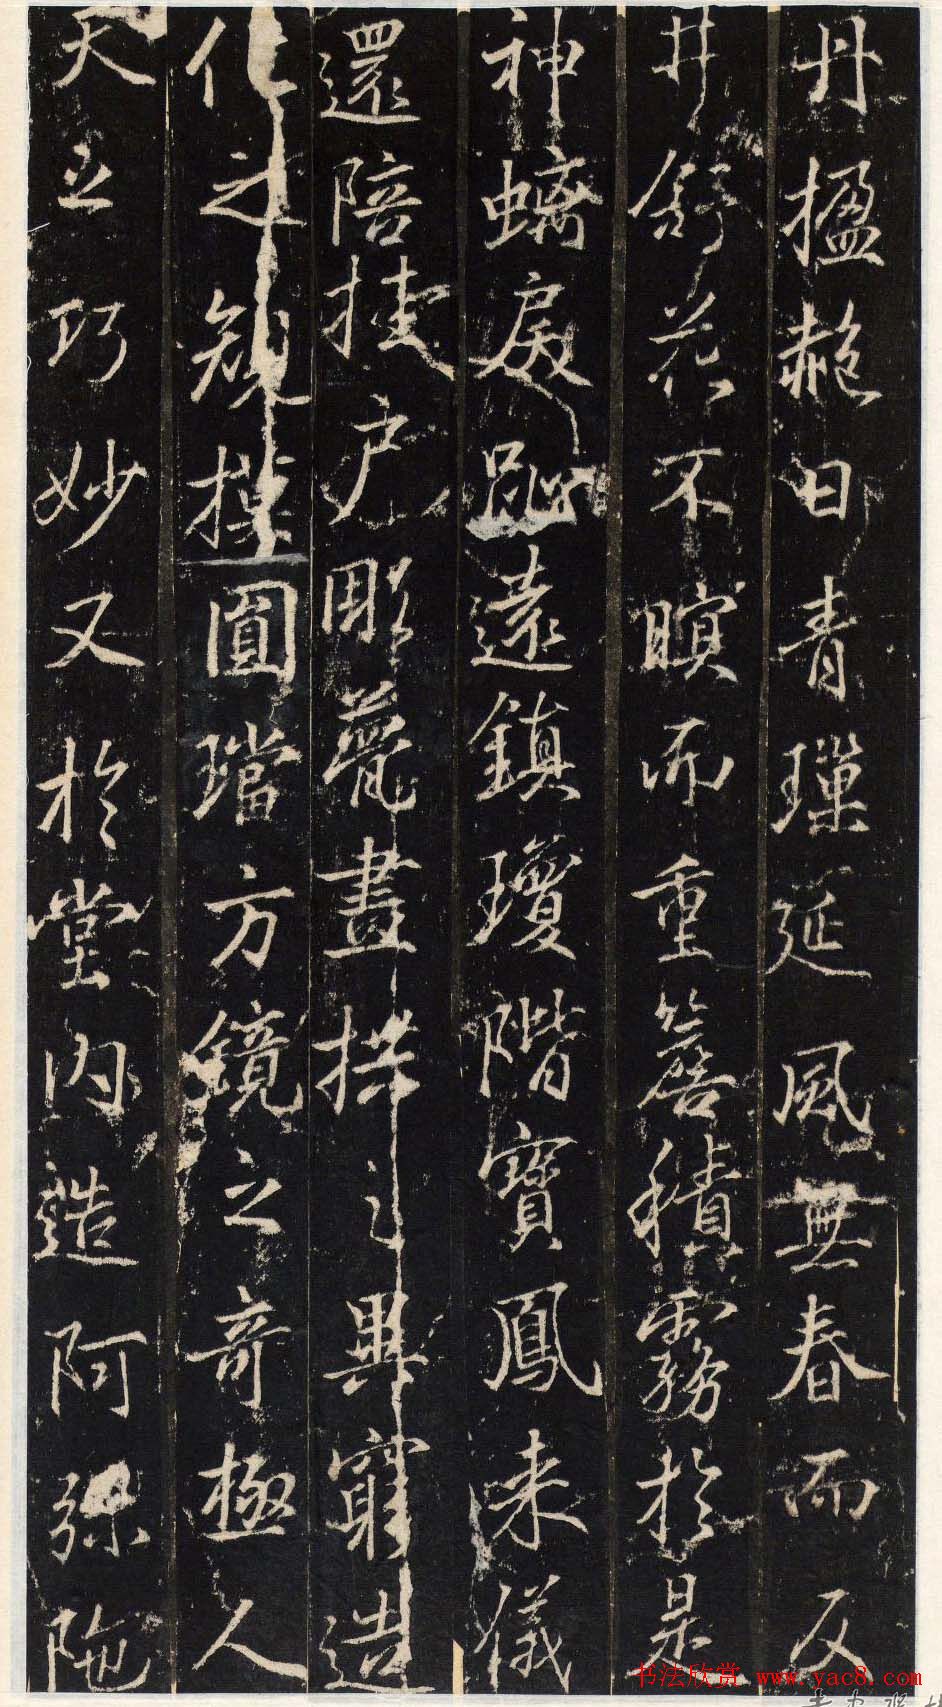 丹楹赩日青璅延風無春而反
井舒花不暝而重簷積霧於是
神螭戾趾遠鎮瓊階寶鳳来儀
還陪桂户雕甍畫拱之異窮造
化之規摸圓璫方鏡之奇極人
天之巧妙又於堂内造阿弥陁
书法欣赏 www.yac8.com